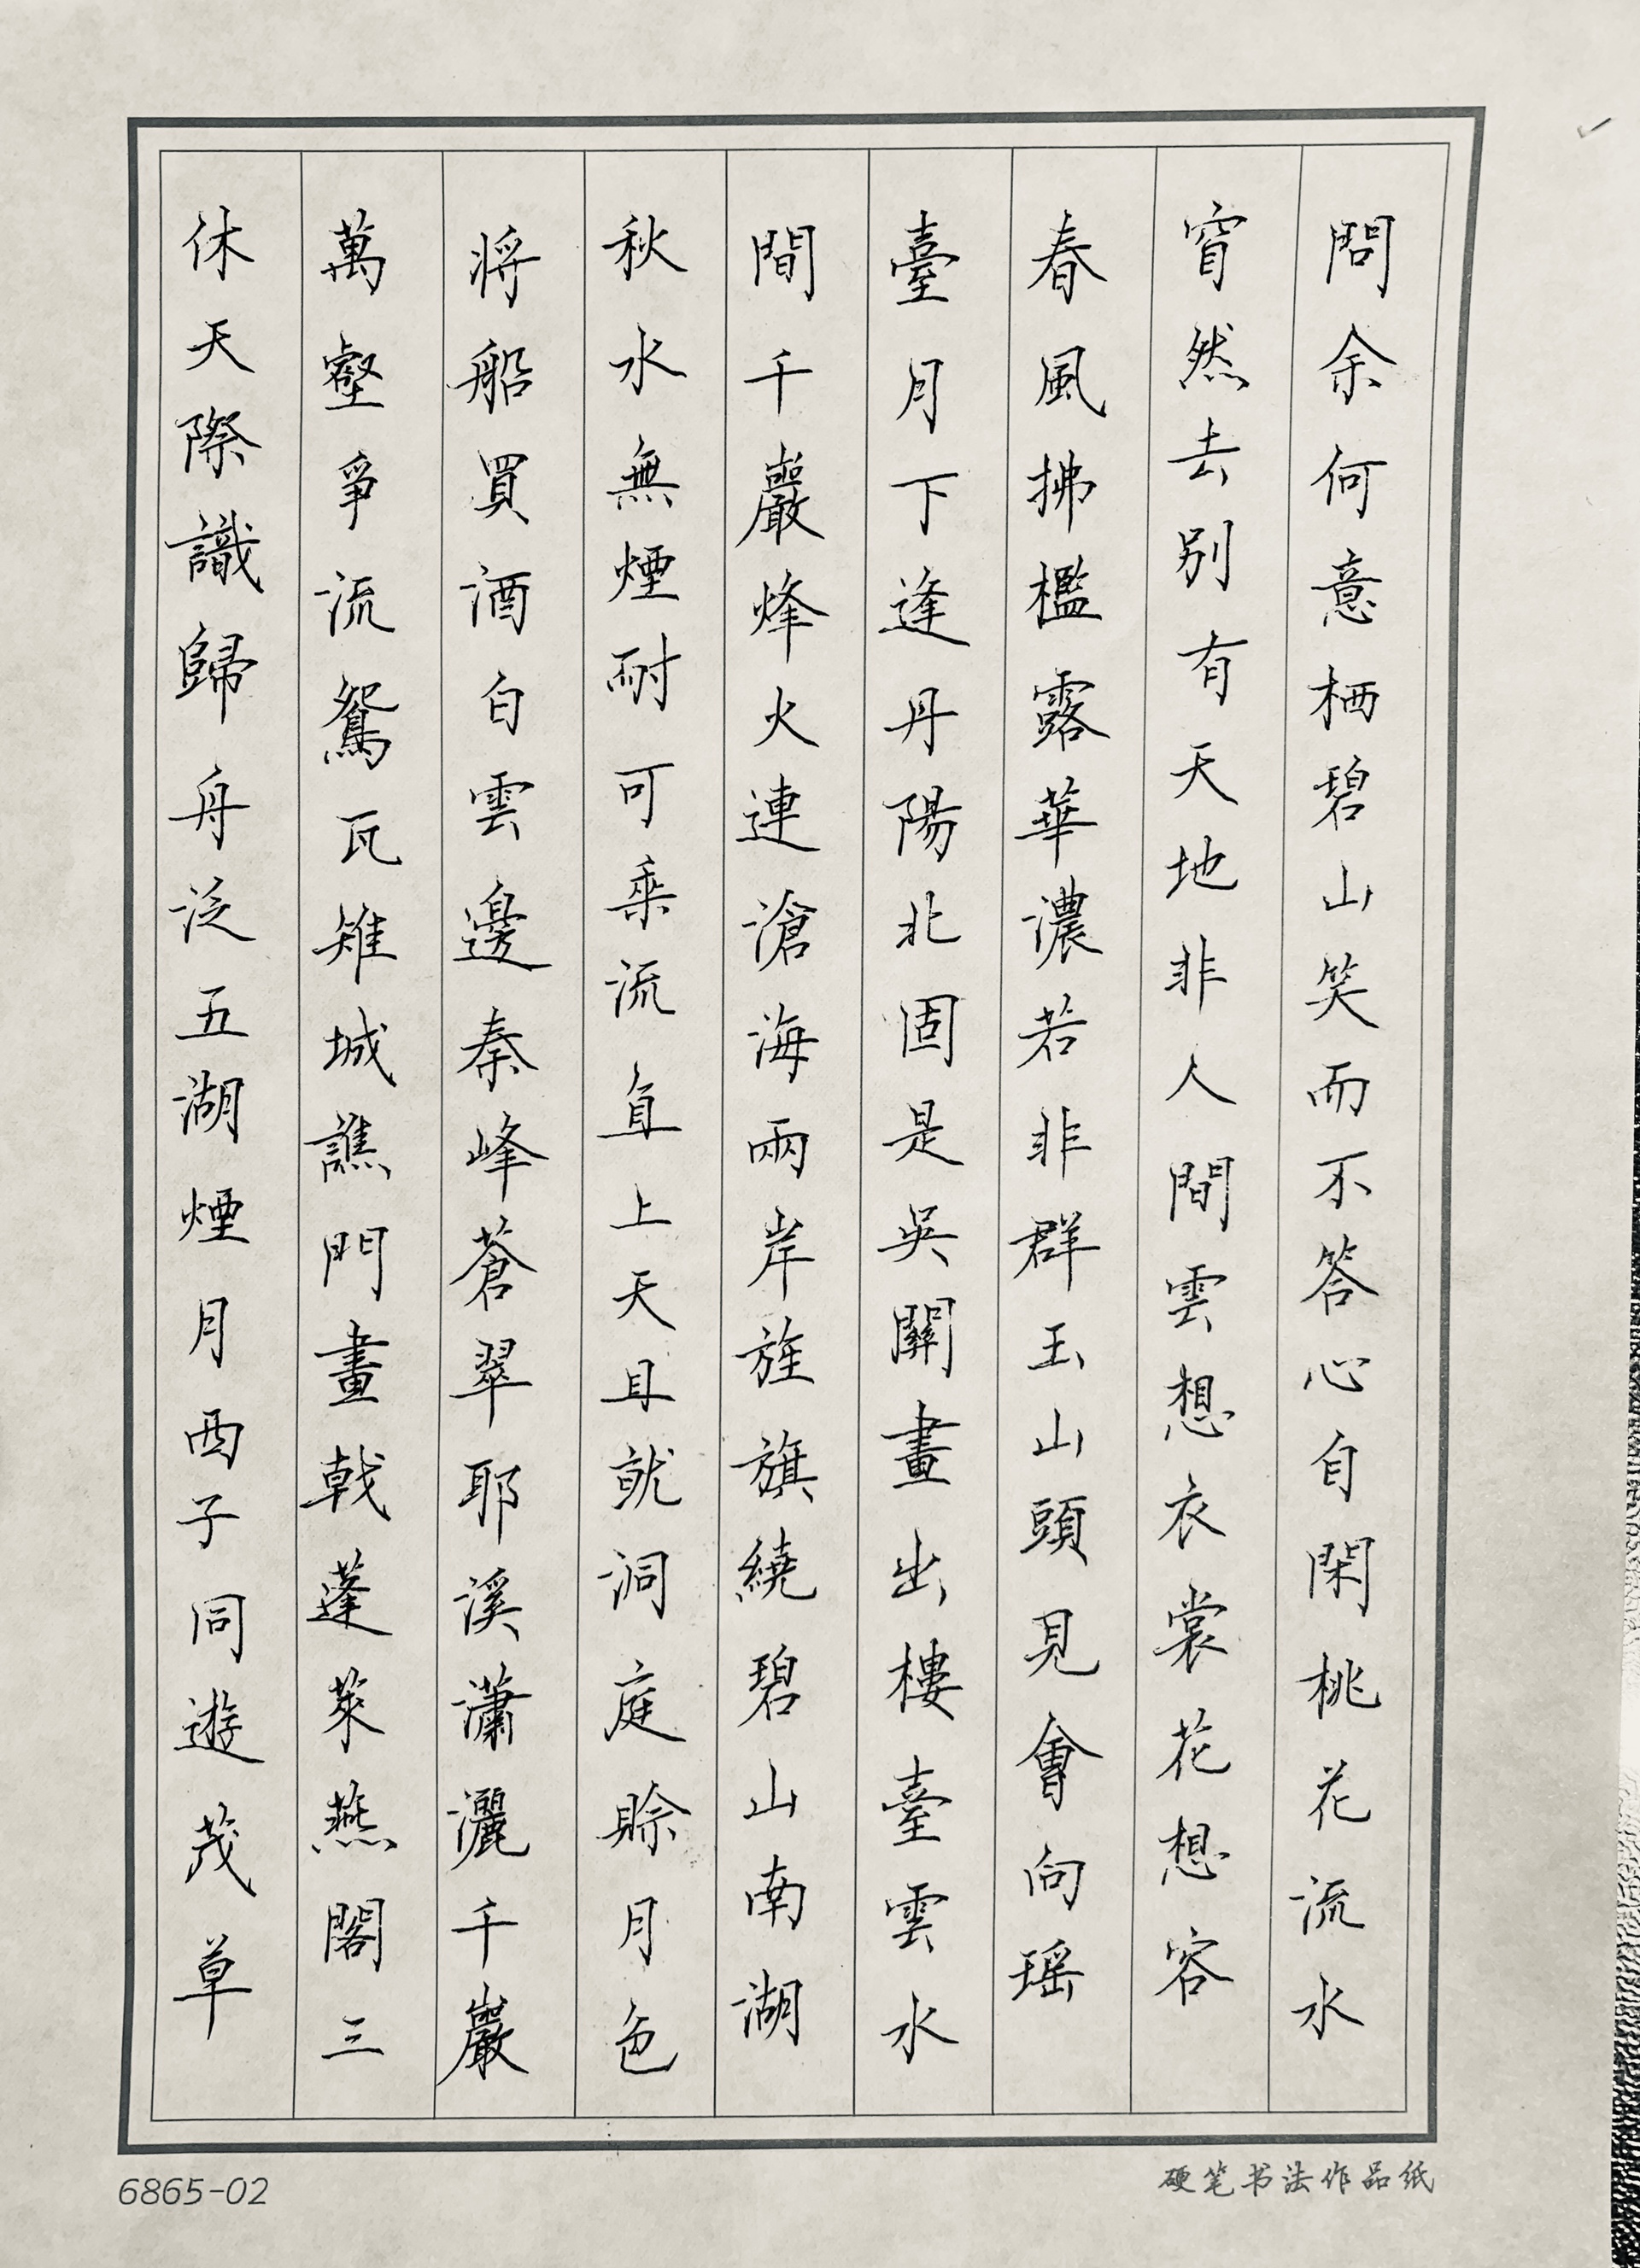 問余何意栖碧山笑而不答心自閑桃花流水
窅然去別有天地非人間雲想衣裳花想容
春風拂檻露華濃若非群玉山頭見會向瑶
臺月下逢丹陽北固是吳關畫出樓臺雲水
間千巖烽火連滄海兩岸旌旗繞碧山南湖
秋水無煙耐可乘流直上天且就洞庭賒月色
將船買酒白雲邊秦峰蒼翠耶溪瀟灑千巖
萬壑爭流鴛瓦雉城譙門畫戟蓬萊燕閣三
休天際識歸舟泛五湖煙月西子同遊茂草
6865-02
硬笔书法作品纸